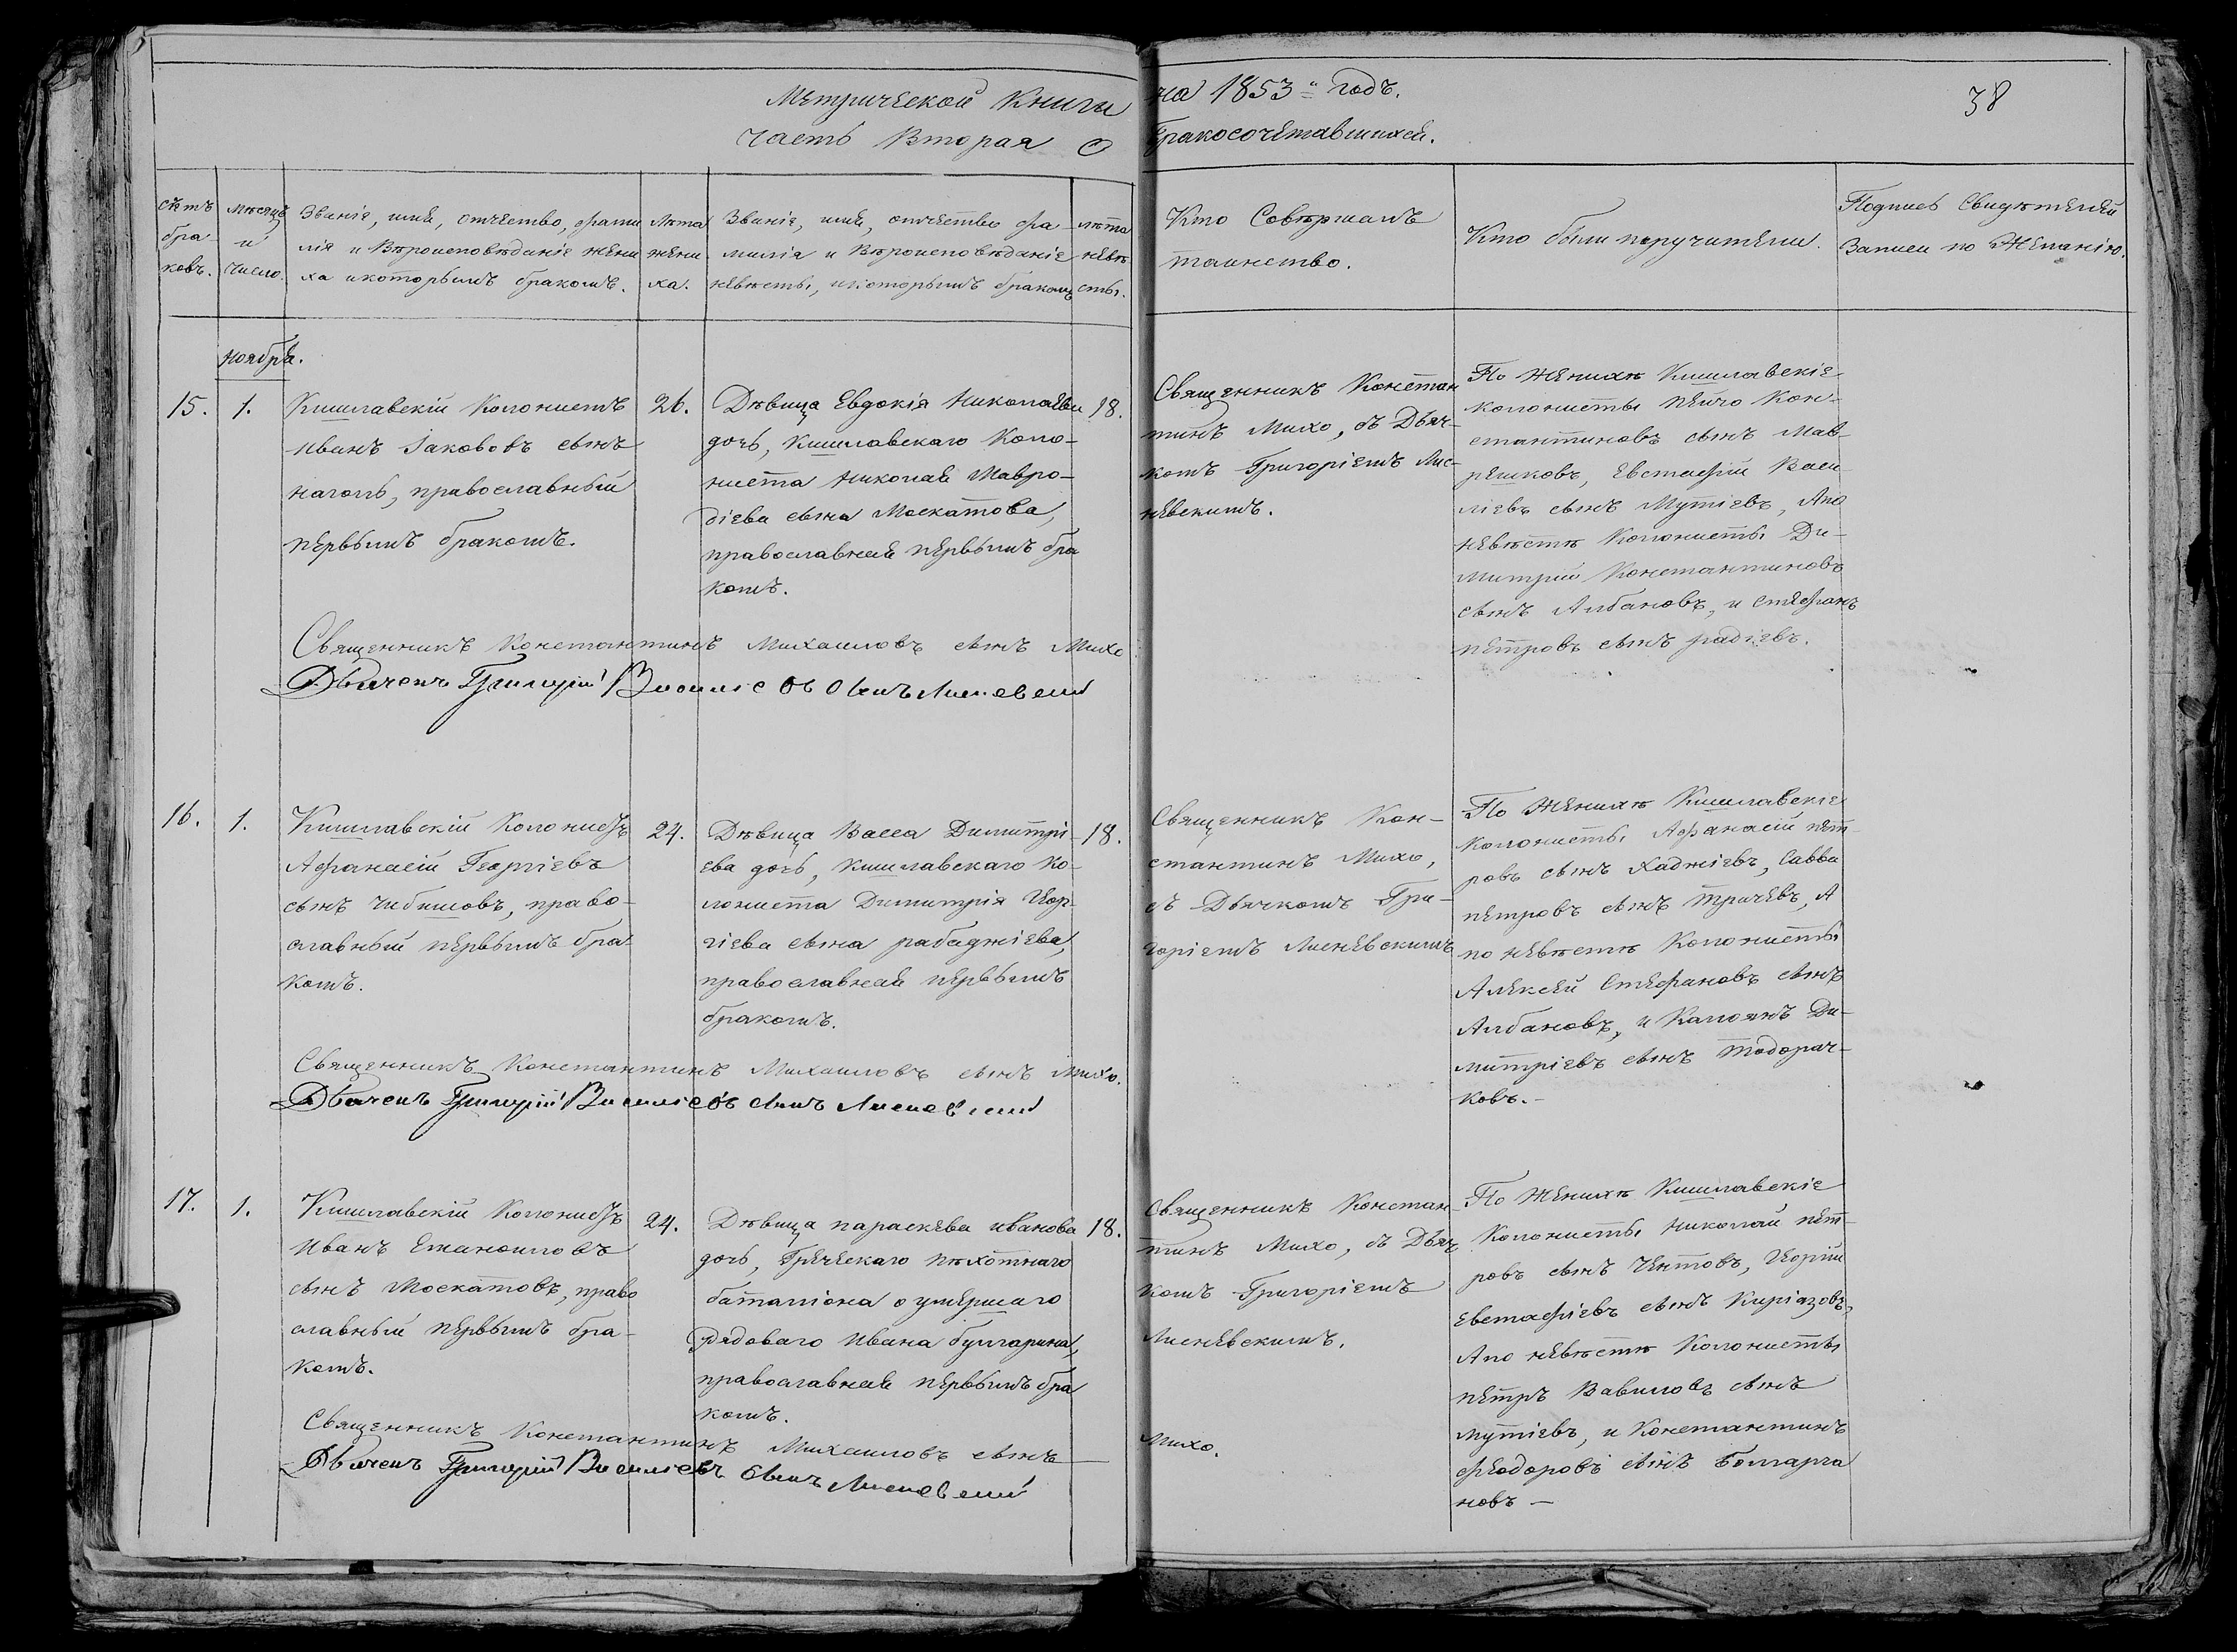 Метрической Книги на 1853-й годъ.
38
часть Вторая О бракосочетавшихся.
счетъ браковъ.
Мѣсяцъ и число.
Званіе, имя, отчество, фами
лія и Вѣроисповѣданіе жени
ха и которымъ бракомъ.
лѣта
жени
ха.
Званіе, имя, отчество фа-
милія и Вѣроисповѣданіе
невѣсты, и которымъ бракомъ
лѣта
невѣ
сты.
Кто Совершалъ
таинство.
Кто были поручители.
Подпись Свидѣтелей
Записи по Желанію.
ноября.
15.
1.
Кишлавскій Колонистъ
Иванъ Іакововъ сынъ
Наголъ, православный
первымъ бракомъ.
26.
Дѣвица Евдокія Николаева
дочь, Кишлавскаго Коло-
ниста Николая Мавро-
діева сына Москатова,
православная первымъ бра
комъ.
18.
Священникъ Констан
тинъ Михо, съ Дьяч-
комъ Григоріемъ Лис-
невскимъ.
По женихѣ Кишлавскіе
колонисты Пейчо Кон-
стантиновъ сынъ Мав-
решковъ, Евстафій Васи-
ліевъ сынъ Мутіевъ, Апо
невѣстѣ Колонисты Ди-
митрій Константиновъ
сынъ Албановъ, и Стефанъ
Петровъ сынъ радіевъ.
Священникъ Константинъ Михаиловъ сынъ Михо
Дьячекъ Григорій Василіевъ сынъ Лисневскій
16.
1.
Кишлавскій Колонистъ
Афанасій Георгіевъ
сынъ Чибишовъ, право-
славный первымъ бра
комъ.
24.
Дѣвица Васса Димитрі-
ева дочь, Кишлавскаго Ко-
лониста Димитрія Геор-
гіева сына рабаджіева,
православная первымъ
бракомъ.
18.
Священникъ Кон-
стантинъ Михо,
съ Дьячкомъ Гри-
горіемъ Лисневскимъ
По женихѣ Кишлавскіе
колонисты Афанасій Пет-
ровъ сынъ Хаджіевъ, Савва
Петровъ сынъ Трачевъ, А
по невѣстѣ Колонисты
Алексей Стефановъ сынъ
Албановъ, и Калоянъ Ди-
митріевъ сынъ Тодорач-
ковъ.-
Священникъ Константинъ Михаиловъ сынъ Михо.
Дьячекъ Григорій Василіевъ сынъ Лисневскій
17.
1.
Кишлавскій Колонистъ
Иванъ Емануиловъ
сынъ Москатовъ, право
славный первымъ бра-
комъ.
24.
Дѣвица параскева иванова
дочь, Греческаго пѣхотнаго
баталіона о умершаго
рядоваго Ивана булгарина,
православная первымъ бра
комъ.
18.
Священникъ Констан-
тинъ Михо, съ Дьяч
комъ Григоріемъ
Лисневскимъ.
По женихѣ Кишлавскіе
Колонисты Николай Пет-
ровъ сынъ Чентовъ, Георгій
Евстафіевъ сынъ Киріазовъ,
Апо невѣстѣ Колонисты
Петръ Вавиловъ сынъ
Мутіевъ, и Константинъ
Феодоровъ сынъ Болгари
новъ -
Священникъ Константинъ Михаиловъ сынъ Михо.
Дьячекъ Григорій Василіевъ сынъ Лисневскій